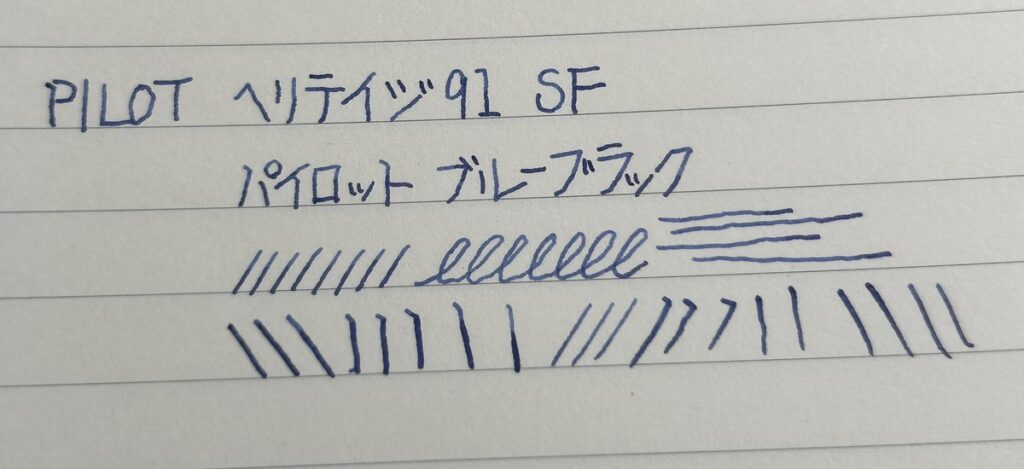 PILOT ヘリテイジ91 SF
パイロット ブルーブラック